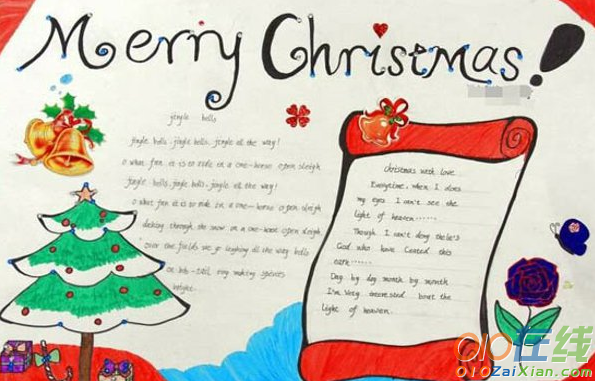 Merry Christmas!
jingle bells
jingle bells, jingle bells, jingle all the way!
o what fun it is to ride in a one-horse open sleigh
jingle bells, jingle bells, jingle all the way!
o what fun it is to ride in a one-horse open sleigh
dashing through the snow in a one-horse open sleigh
over the fields we go laughing all the way bells
on bob-tail ring making spirits
bright
Christmas with love
Everytime, when I does
my eyes I can't see the
light of heaven......
Though I can't deng
God who have Cented this
earn......
Day by day month by month
I'm Very interesed bout the
light of heaven.
010在线
010ZaiXian.com